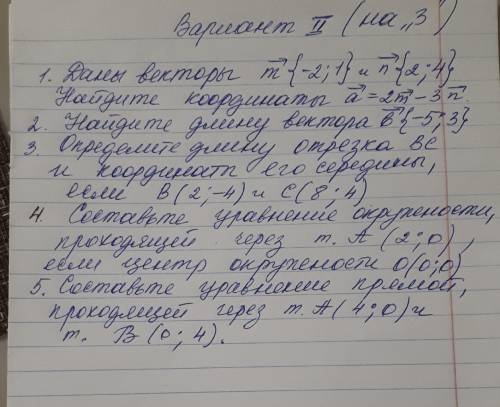 Вариант II (на „3")
1. Даны векторы m⃗ {-2; 1} и n⃗ {2; 4}
Найдите координаты a⃗ = 2m⃗ - 3n⃗.
2. Найдите длину вектора B⃗ {-5; 3}
3. Определите длину отрезка BC
и координат его середины,
если B(2; -4) и C(8; 4)
4. Составьте уравнение окружности,
проходящей через т. A (2; 0),
если центр окружности O(0; 0)
5. Составьте уравнение прямой,
проходящей через т. A(4; 0) и
т. B (0; 4).